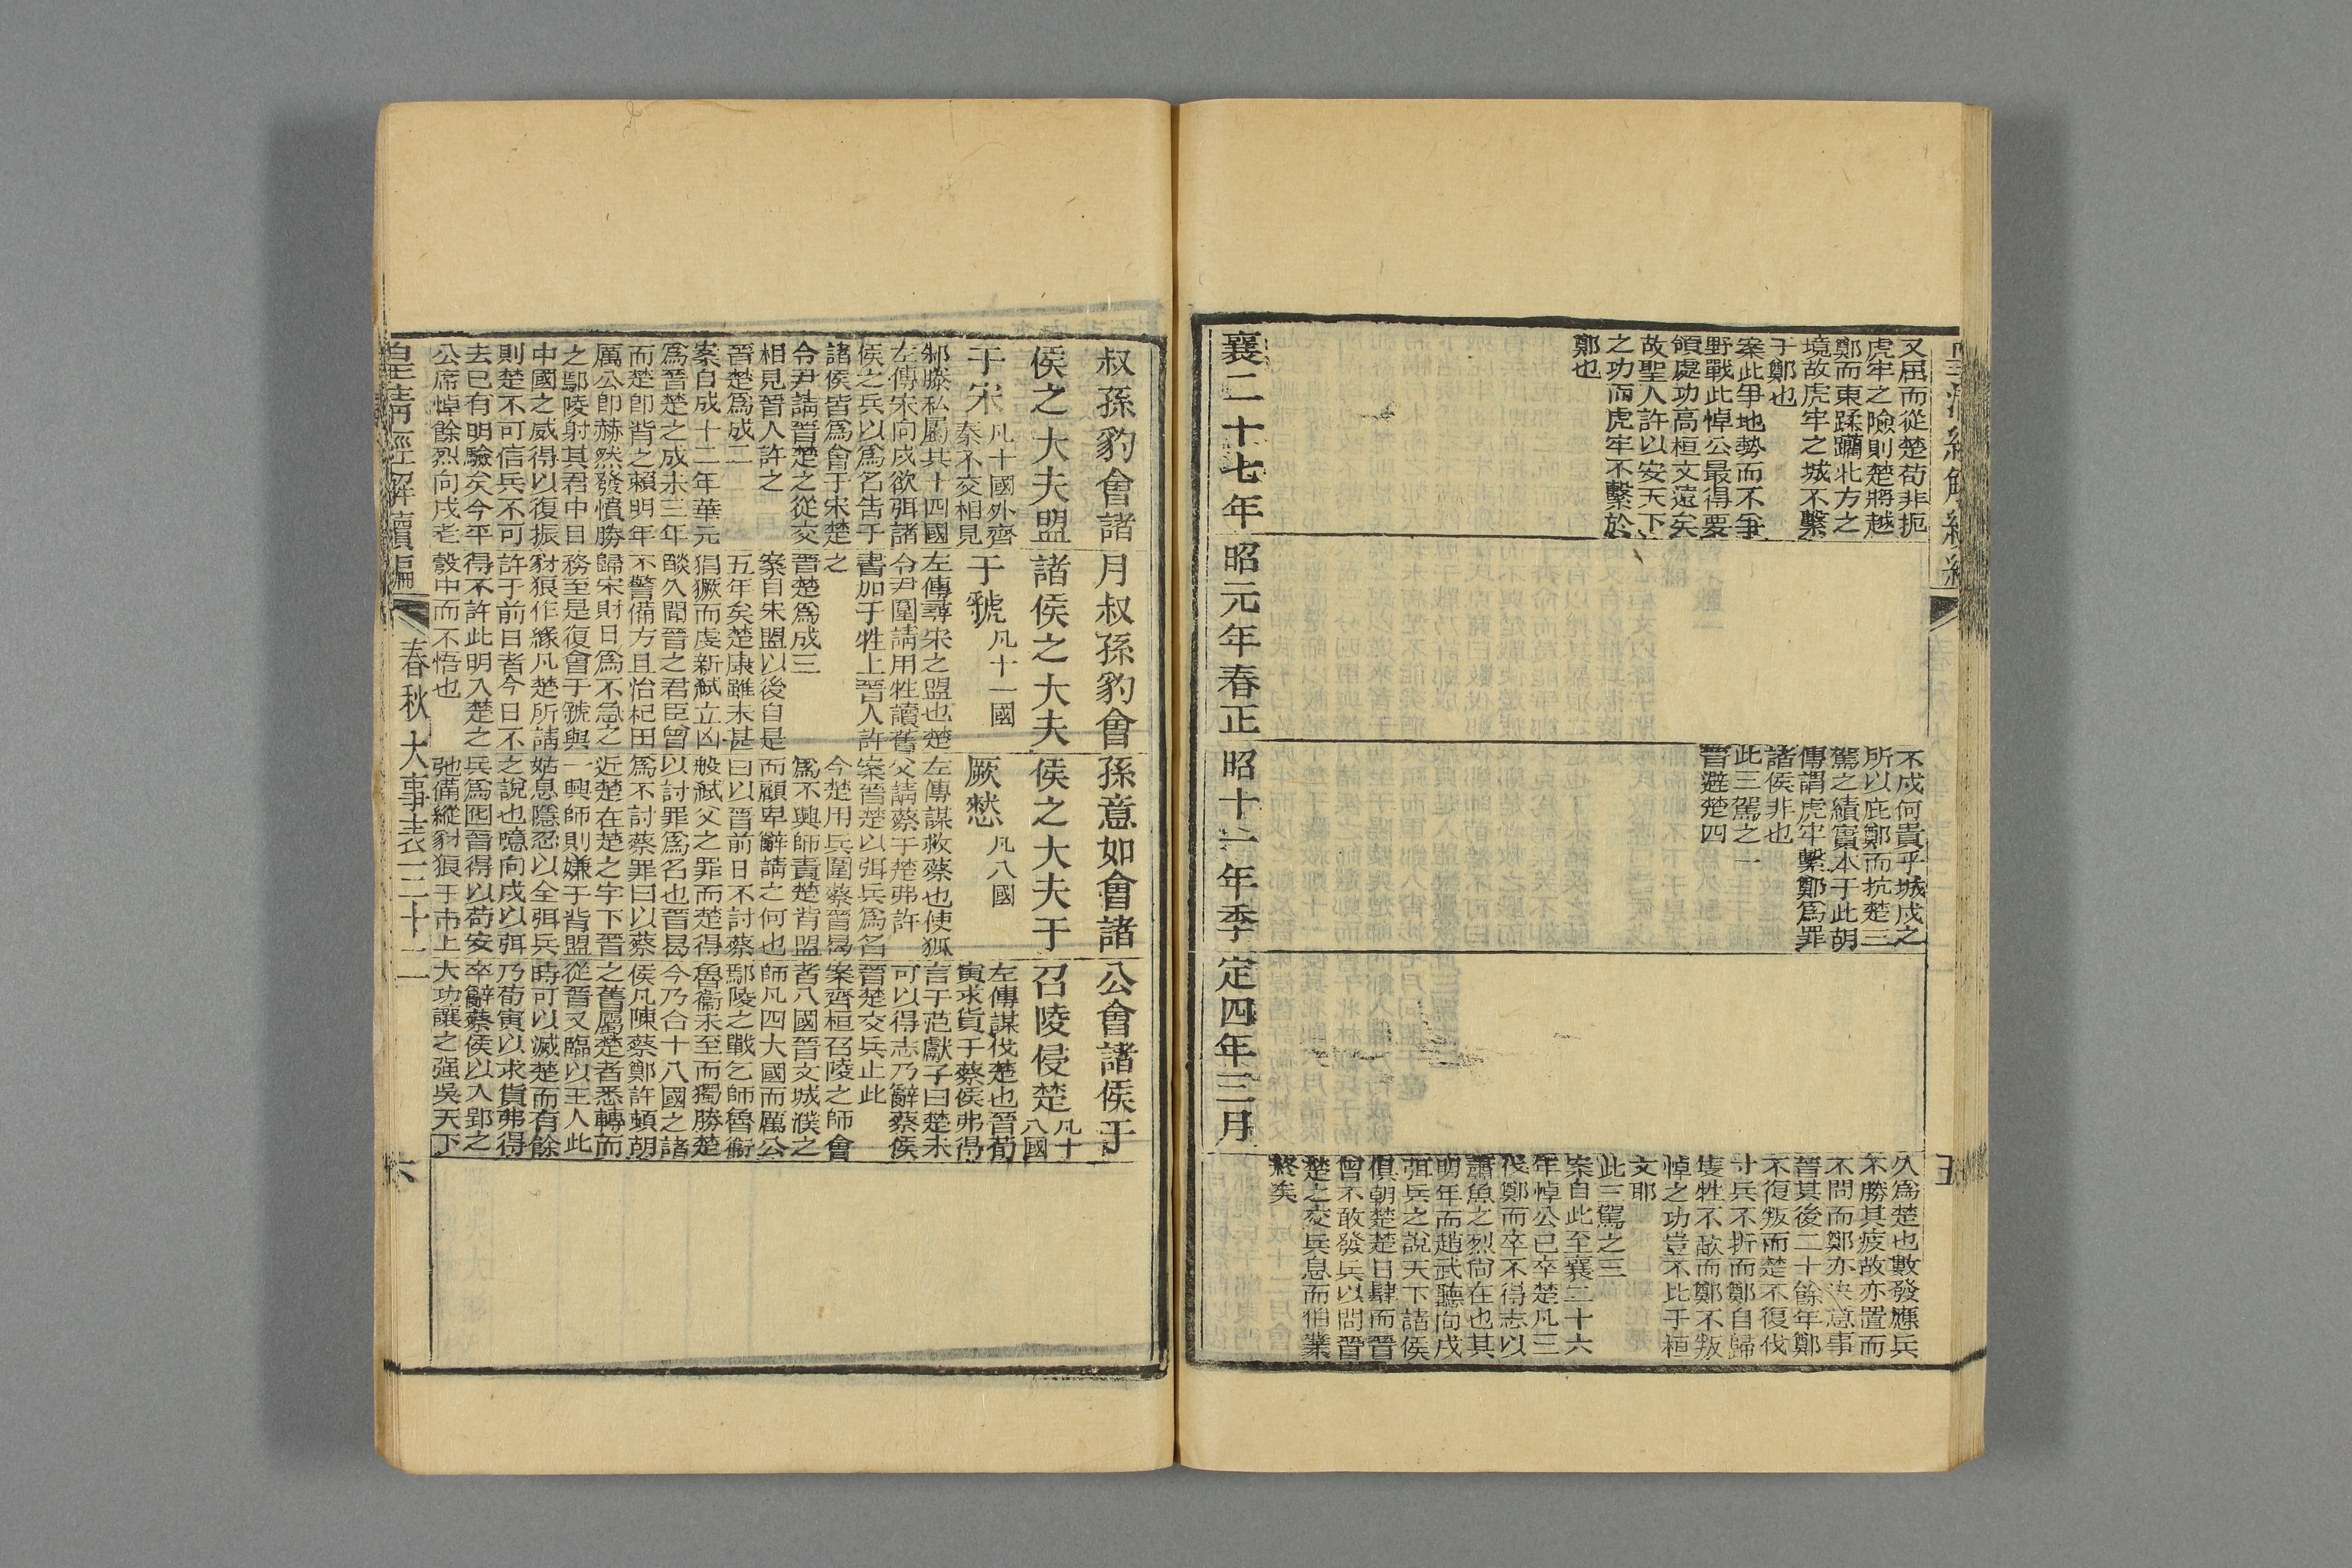 又屈而從楚苟非扼
虎牢之險則楚將越
鄭而東蹂躪北方之
境故虎牢之城不繫
于鄭也
案此爭地勢而不爭
野戰此悼公最得要
領處功高桓文遠矣
故聖人許以安天下
之功而虎牢不繫於
鄭也
不戍何貴乎城戍之
所以庇鄭而抗楚三
駕之績實本于此胡
傳謂虎牢繫鄭爲罪
諸侯非也
此三駕之一
晉避楚四
久爲楚也數發應兵
不勝其疲故亦置而
不問而鄭亦決意事
晉其後二十餘年鄭
不復叛而楚不復伐
寸兵不折而鄭自歸
隻牲不歃而鄭不叛
悼之功豈不比于桓
文耶
此三駕之三
案自此至襄二十六
年悼公已卒楚凡三
伐鄭而卒不得志以
蕭魚之烈尙在也其
明年而趙武聽向戌
弭兵之說天下諸侯
俱朝楚楚日肆而晉
曾不敢發兵以問晉
楚之交兵息而伯業
終矣
襄二十七年
昭元年春正
昭十一年季
定四年三月
五
叔孫豹會諸
侯之大夫盟
于宋凡十國外齊
秦不交相見
邾滕私屬共十四國
左傳宋向戌欲弭諸
侯之兵以爲名告于
諸侯皆爲會于宋楚
令尹請晉楚之從交
相見晉人許之
晉楚爲成二
案自成十二年華元
爲晉楚之成未三年
而楚卽背之賴明年
厲公卽赫然發憤勝
之鄢陵射其君中目
中國之威得以復振
則楚不可信兵不可
去已有明驗矣今平
公席悼餘烈向戌老
月叔孫豹會
諸侯之大夫
于虢凡十一國
左傳尋宋之盟也楚
令尹圍請用牲讀舊
書加于牲上晉人許
之
晉楚爲成三
案自宋盟以後自是
五年矣楚康雖未甚
猖獗而虔新弒立凶
燄久聞晉之君臣曾
不警備方且怡杞田
歸宋財日爲不急之
務至是復會于虢與
豺狼作緣凡楚所請
許于前日者今日不
得不許此明入楚之
彀中而不悟也
孫意如會諸
侯之大夫于
厥憖凡八國
左傳謀救蔡也使狐
父請蔡于楚弗許
案晉楚以弭兵爲名
今楚用兵圍蔡晉曷
爲不興師責楚背盟
而顧卑辭請之何也
曰以晉前日不討蔡
般弒父之罪而楚得
以討罪爲名也晉曷
爲不討蔡罪曰以蔡
近楚在楚之宇下晉
一興師則嫌于背盟
姑息隱忍以全弭兵
之說也噫向戌以弭
兵爲囮晉得以苟安
弛備縱豺狼于市上
公會諸侯于
召陵侵楚凡十
八國
左傳謀伐楚也晉荀
寅求貨于蔡侯弗得
言于范獻子曰楚未
可以得志乃辭蔡侯
晉楚交兵止此
案齊桓召陵之師會
者八國晉文城濮之
師凡四大國而厲公
鄢陵之戰乞師魯衞
魯衞未至而獨勝楚
今乃合十八國之諸
侯凡陳蔡鄭許頓胡
之舊屬楚者悉轉而
從晉又臨以王人此
時可以滅楚而有餘
乃荀寅以求貨弗得
卒辭蔡侯以入郢之
大功讓之强吳天下
皇淸經解續編
春秋大事表三十二
六